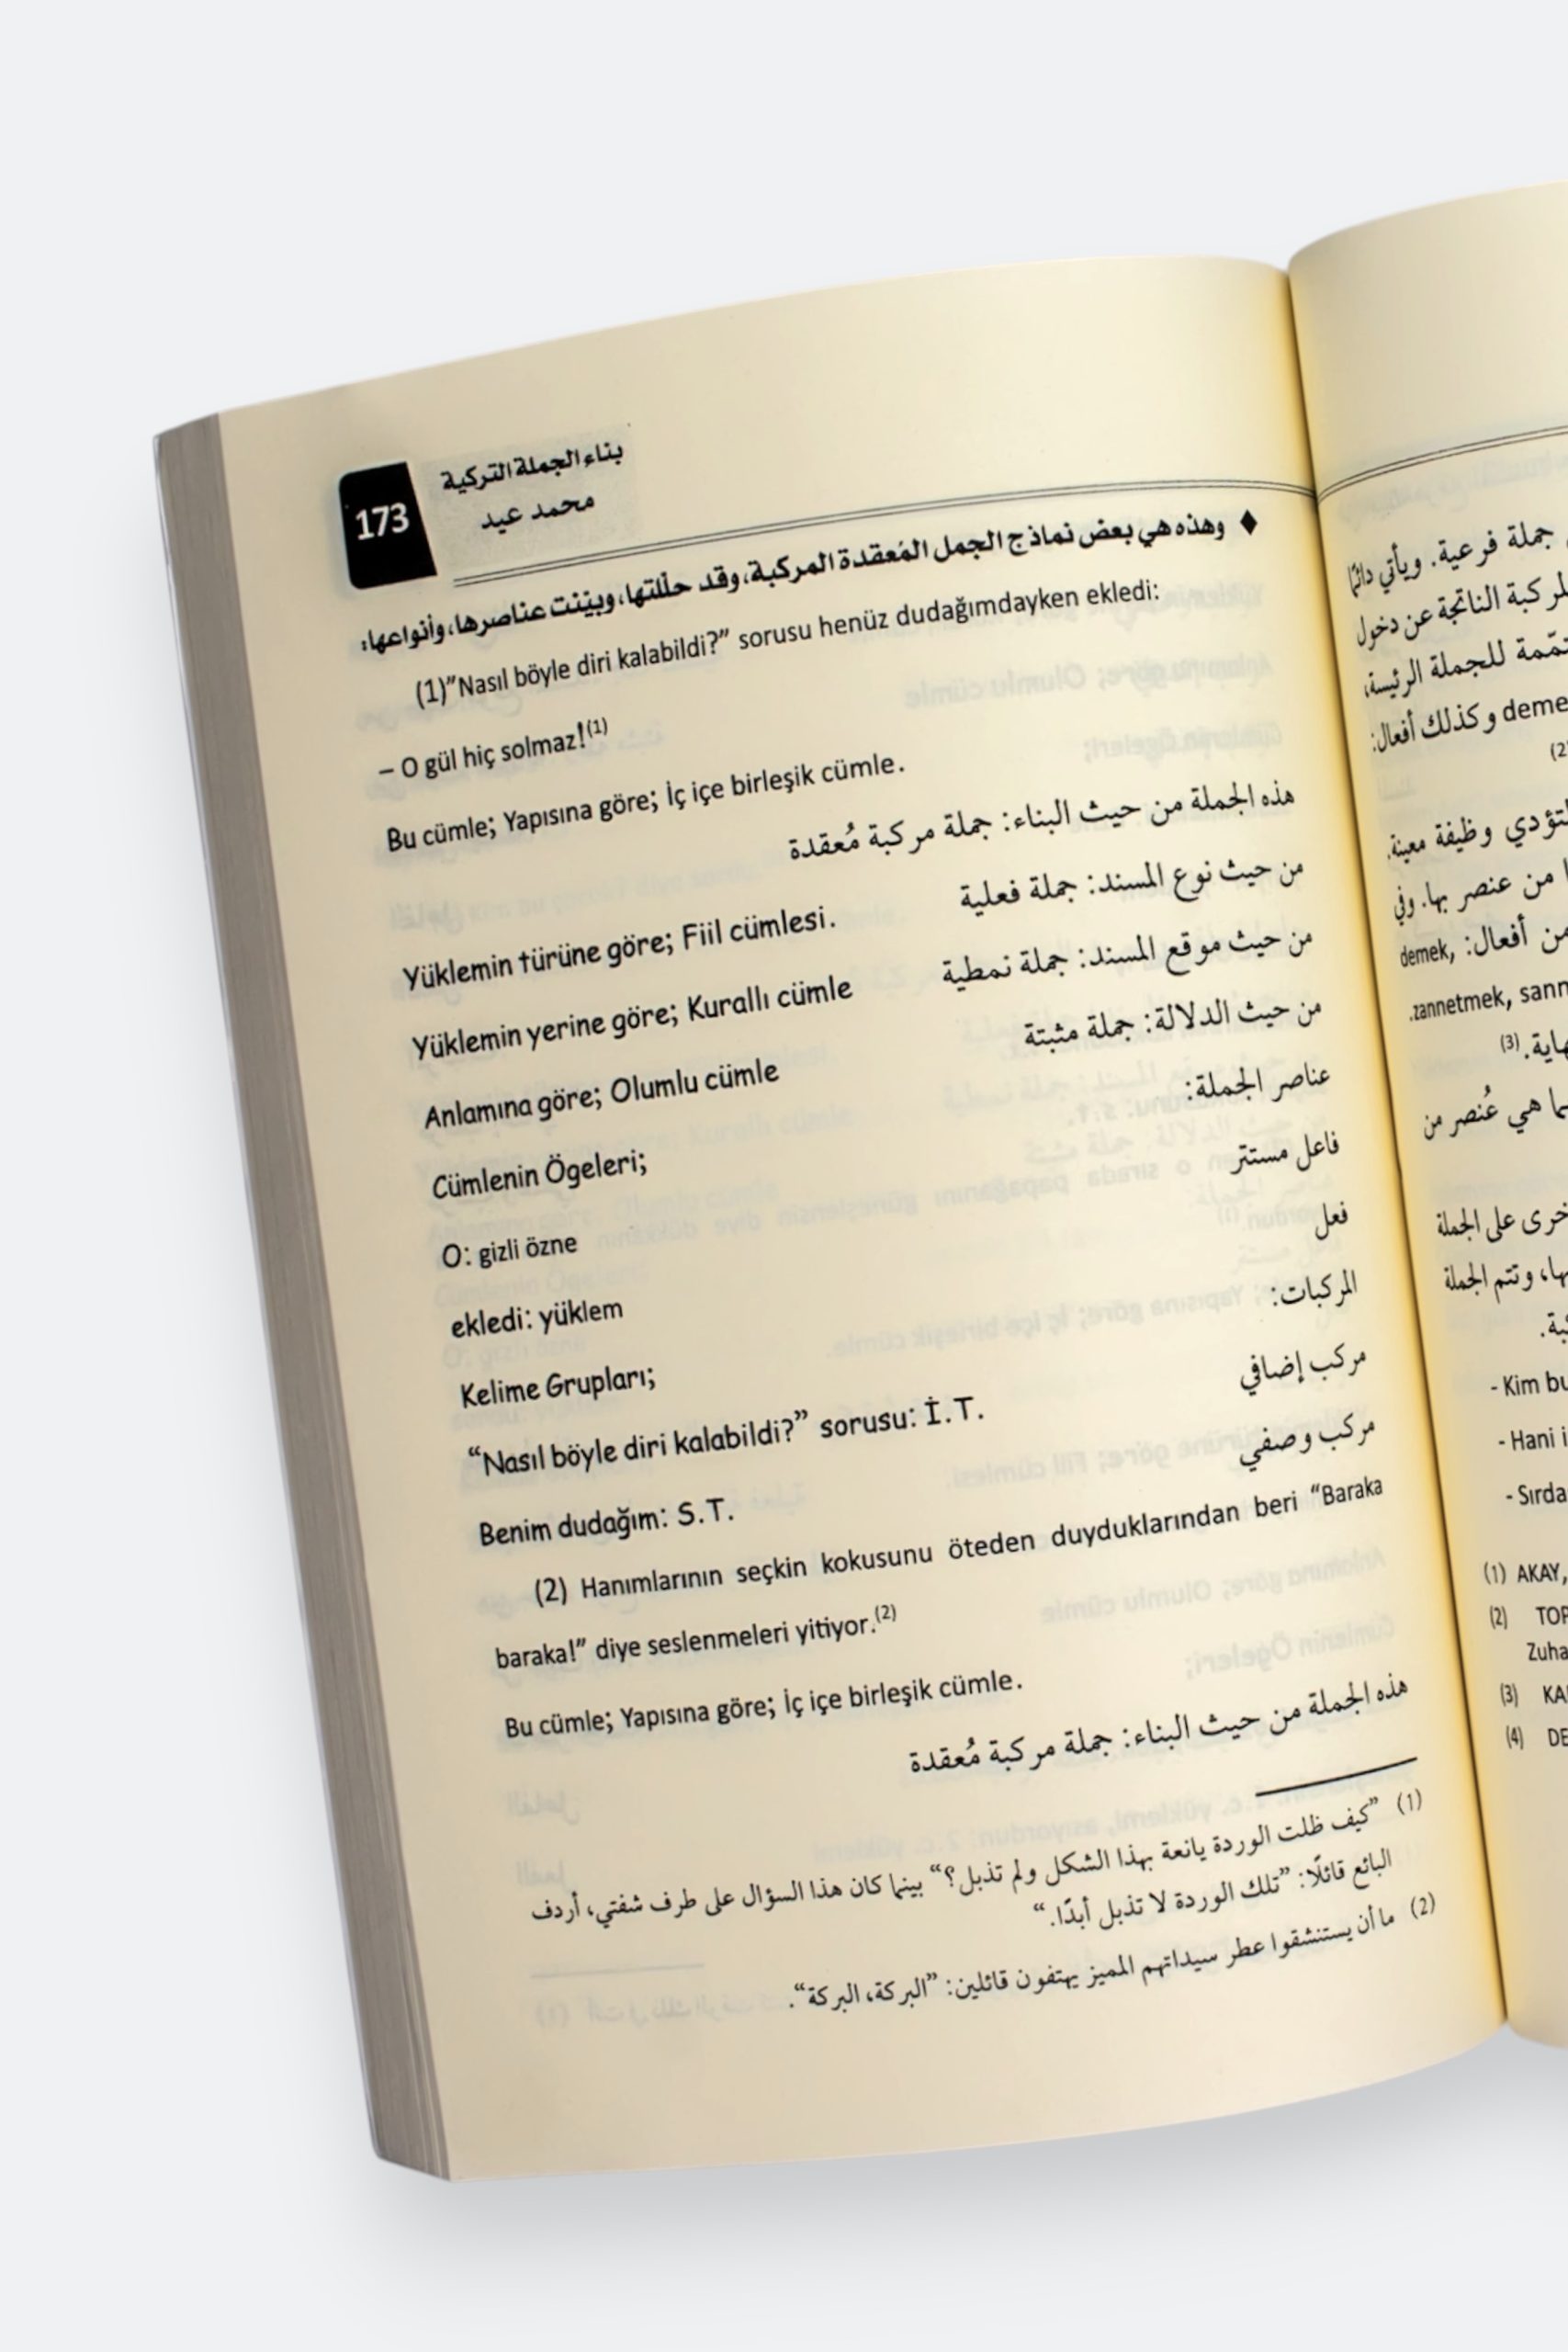 173
بناء الجملة التركية
محمد عيد
♦ وهذه هي بعض نماذج الجمل المُعقدة المركبة، وقد حلّلتها، وبيّنت عناصرها، وأنواعها:
(1)"Nasıl böyle diri kalabildi?" sorusu henüz dudağımdayken ekledi:
– O gül hiç solmaz!(1)
Bu cümle; Yapısına göre; İç içe birleşik cümle.
هذه الجملة من حيث البناء: جملة مركبة مُعقدة
Yüklemin türüne göre; Fiil cümlesi. من حيث نوع المسند: جملة فعلية
Yüklemin yerine göre; Kurallı cümle من حيث موقع المسند: جملة نمطية
Anlamına göre; Olumlu cümle من حيث الدلالة: جملة مثبتة
Cümlenin Ögeleri; عناصر الجملة:
O: gizli özne فاعل مستتر
ekledi: yüklem فعل
Kelime Grupları; المركبات:
"Nasıl böyle diri kalabildi?" sorusu: İ.T. مركب إضافي
Benim dudağım: S.T. مركب وصفي
(2) Hanımlarının seçkin kokusunu öteden duyduklarından beri "Baraka
baraka!" diye seslenmeleri yitiyor.(2)
Bu cümle; Yapısına göre; İç içe birleşik cümle.
هذه الجملة من حيث البناء: جملة مركبة مُعقدة
(1) "كيف ظلت الوردة يانعة بهذا الشكل ولم تذبل؟" بينما كان هذا السؤال على طرف شفتي، أردف
البائع قائلًا: "تلك الوردة لا تذبل أبدًا."
(2) ما أن يستنشقوا عطر سيداتهم المميز يهتفون قائلين: "البركة، البركة".
جملة فرعية. ويأتي دائمًا
المركبة الناتجة عن دخول
للجملة الرئيسة،
وكذلك أفعال:
(2)
لتؤدي وظيفة معينة.
من عنصر بها. وفي
من أفعال: demek,
zannetmek,
(3)
هي عُنصر من
على الجملة
وتتم الجملة
- Kim bu
- Hani
(1) AKAY,
(2)
(3)
(4)